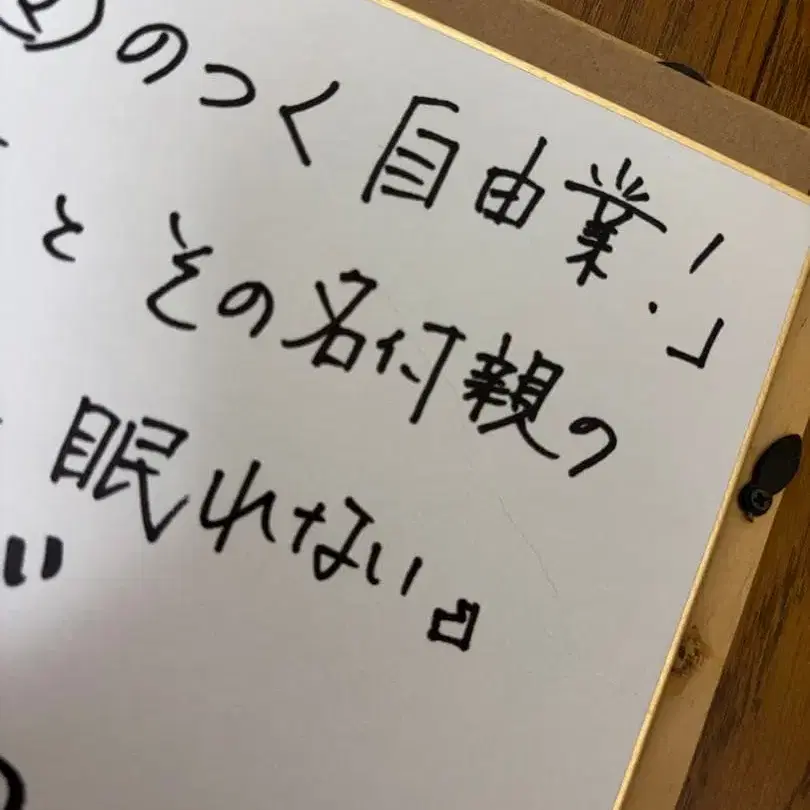 のつく自由業!」
とその名付親の
眠れない』
い